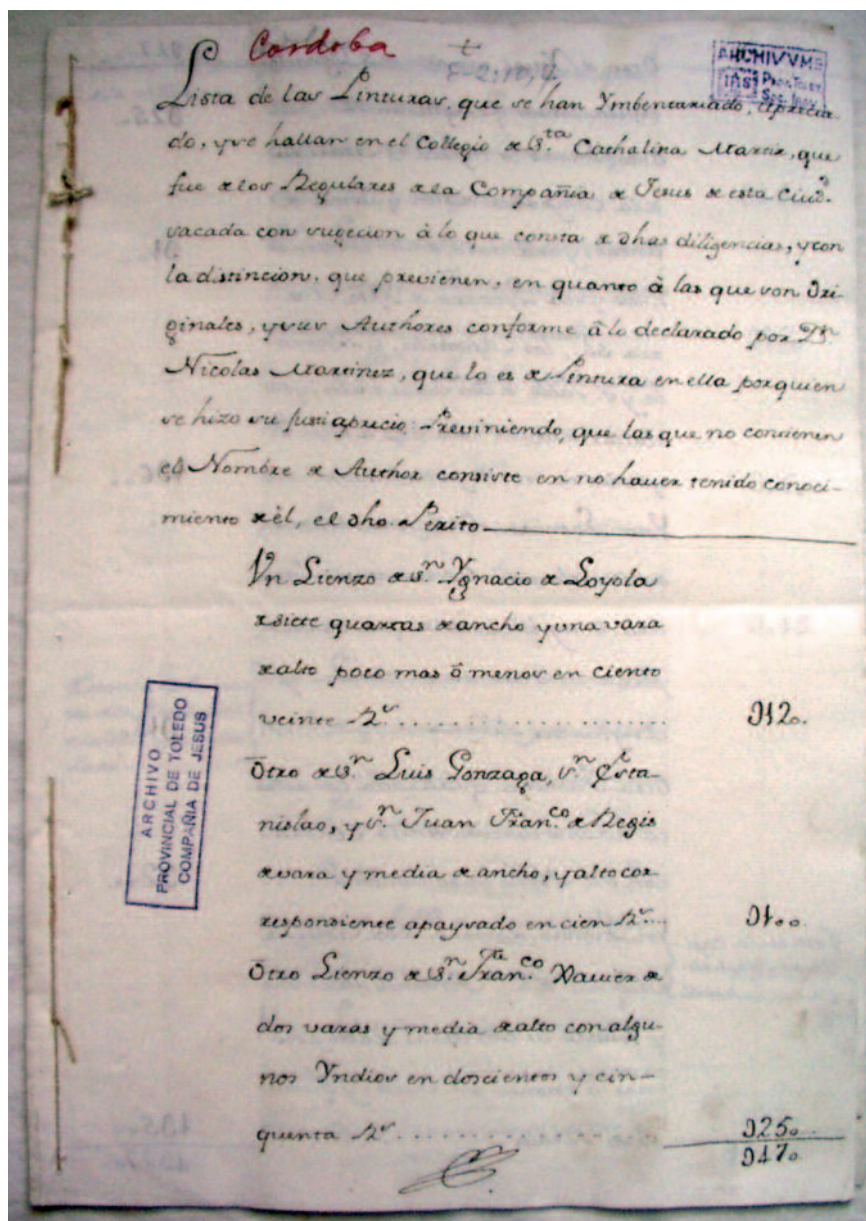 Cordoba
ARCHIVVMS
Lista de las Pinturas, que se han Ymbentariado, aprecia-
do, y se hallan en el Collegio de S.ta Cathalina Martir, que
fue de los Regulares de la Compañia de Jesus de esta Ciud.d
sacada con sugecion à lo que consta de dhas diligencias, y con
la distincion, que previenen, en quanto à las que son Ori-
ginales, y sus Authores conforme â lo declarado por Dn.
Nicolas Martinez, que lo es de Pintura en ella por quien
se hizo su justiaprecio Previniendo, que las que no contienen
el Nombre de Author consiste en no haver tenido conoci-
miento de èl, el dho Perito
Vn Lienzo de Sn. Ygnacio de Loyola
de siete quartas de ancho y una vara
de alto poco mas ô menos en ciento
veinte Rs. 120.
Otro de Sn. Luis Gonzaga, Sn. Esta-
nislao, y Sn. Juan Fran.co de Regis
de vara y media de ancho, y alto cor-
respondiente apaysado en cien Rs. 100
Otro Lienzo de Sn. Fran.co Xavier de
dos varas y media de alto con algu-
nos Yndios en doscientos y cin-
quenta Rs. 250
470
ARCHIVO
PROVINCIAL DE TOLEDO
COMPAÑIA DE JESUS